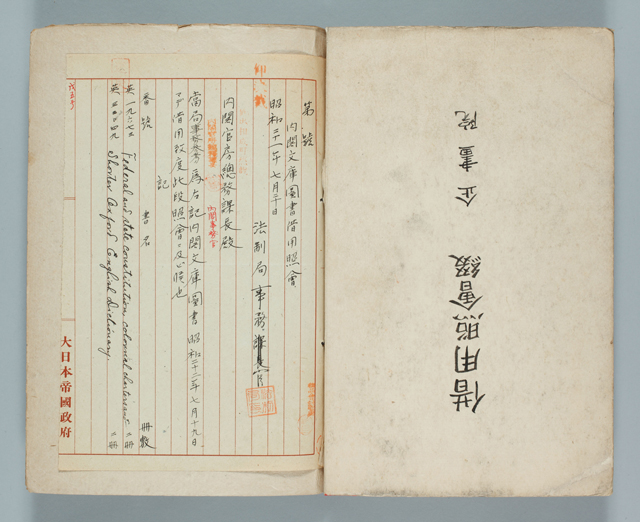 第 號
内閣文庫圖書借用照會
昭和二十一年七月 日
法制局事務官
内閣官房總務課長殿
當局事務參考ノ爲左記内閣文庫圖書昭和二十一年七月十九日
マデ借用致度此段照會ニ及候也
記
番號 書名 冊數
英 Federal and state constitution colonial charters and 二冊
英 Shorter Oxford English dictionary. 二冊
大日本帝國政府
借用照會綴
企畫院